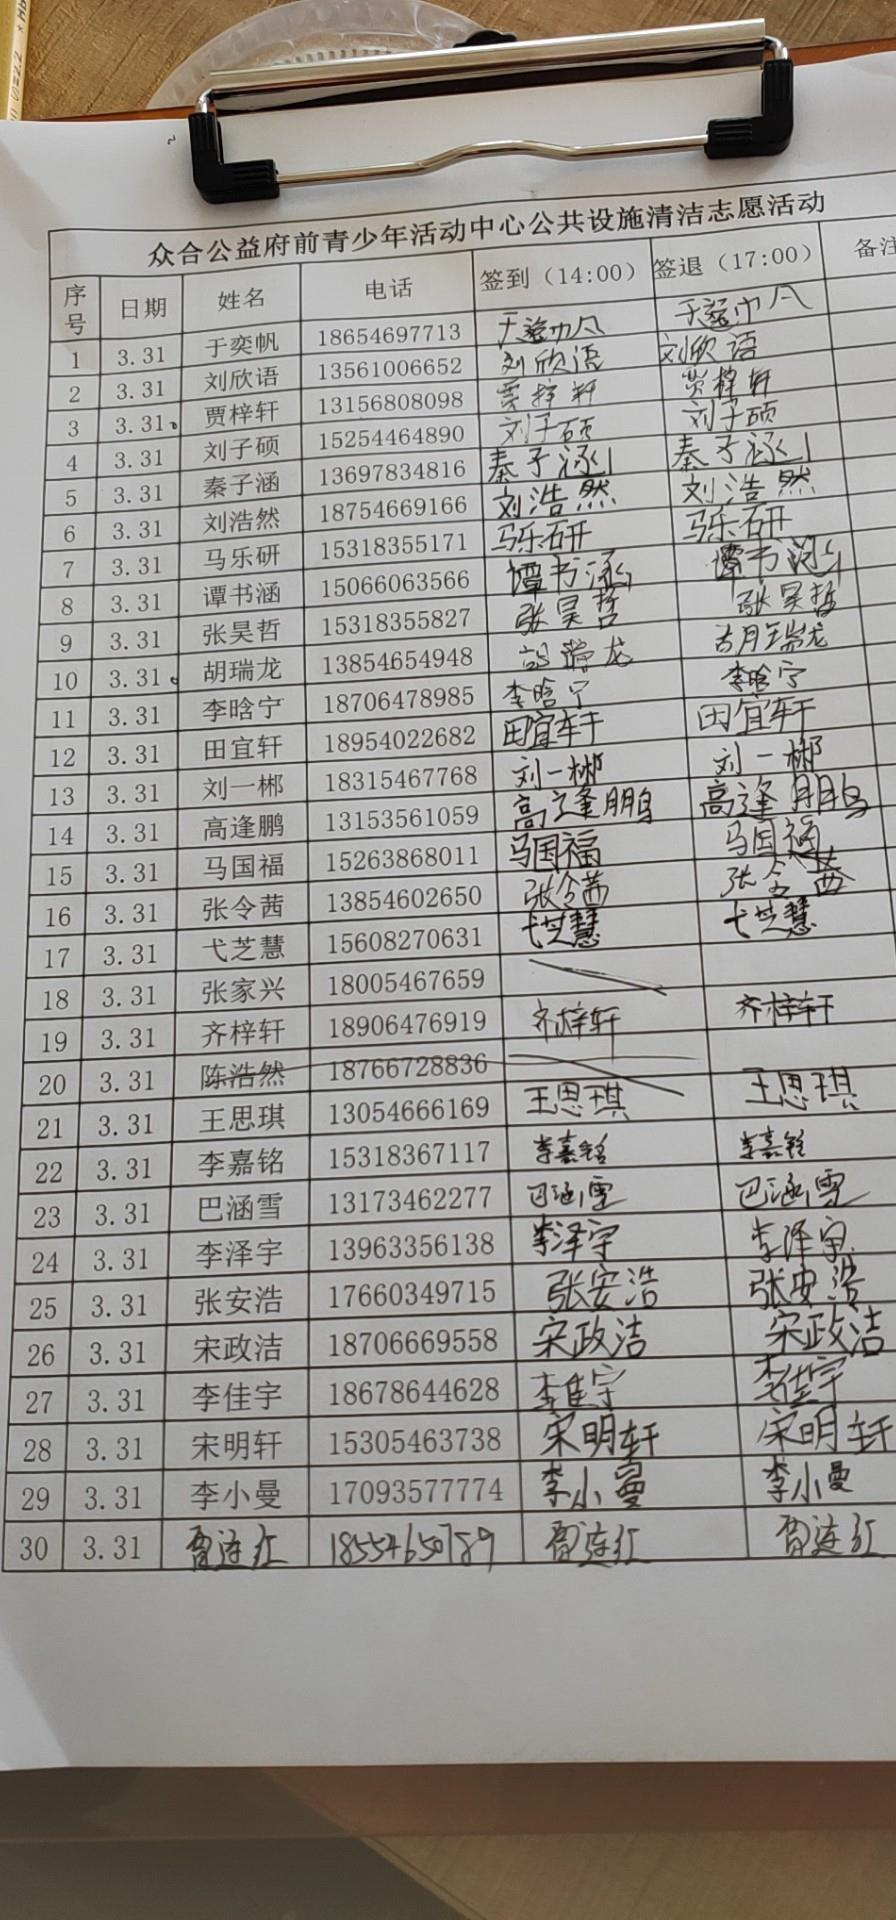 众合公益府前青少年活动中心公共设施清洁志愿活动
序号 日期 姓名 电话 签到（14:00） 签退（17:00） 备注
1 3.31 于奕帆 18654697713 于奕帆 于奕帆
2 3.31 刘欣语 13561006652 刘欣语 刘欣语
3 3.31 贾梓轩 13156808098 贾梓轩 贾梓轩
4 3.31 刘子硕 15254464890 刘子硕 刘子硕
5 3.31 秦子涵 13697834816 秦子涵 秦子涵
6 3.31 刘浩然 18754669166 刘浩然 刘浩然
7 3.31 马乐研 15318355171 马乐研 马乐研
8 3.31 谭书涵 15066063566 谭书涵 谭书涵
9 3.31 张昊哲 15318355827 张昊哲 张昊哲
10 3.31 胡瑞龙 13854654948 胡瑞龙 胡瑞龙
11 3.31 李晗宁 18706478985 李晗宁 李晗宁
12 3.31 田宜轩 18954022682 田宜轩 田宜轩
13 3.31 刘一郴 18315467768 刘一郴 刘一郴
14 3.31 高逢鹏 13153561059 高逢鹏 高逢鹏
15 3.31 马国福 15263868011 马国福 马国福
16 3.31 张令茜 13854602650 张令茜 张令茜
17 3.31 弋芝慧 15608270631 弋芝慧 弋芝慧
18 3.31 张家兴 18005467659
19 3.31 齐梓轩 18906476919 齐梓轩 齐梓轩
20 3.31 陈浩然 18766728836
21 3.31 王思琪 13054666169 王思琪 王思琪
22 3.31 李嘉铭 15318367117 李嘉铭 李嘉铭
23 3.31 巴涵雪 13173462277 巴涵雪 巴涵雪
24 3.31 李泽宇 13963356138 李泽宇 李泽宇
25 3.31 张安浩 17660349715 张安浩 张安浩
26 3.31 宋政洁 18706669558 宋政洁 宋政洁
27 3.31 李佳宇 18678644628 李佳宇 李佳宇
28 3.31 宋明轩 15305463738 宋明轩 宋明轩
29 3.31 李小曼 17093577774 李小曼 李小曼
30 3.31 连红 18554650789 连红 连红